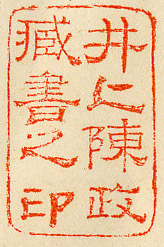 井上陳政
臧書之印